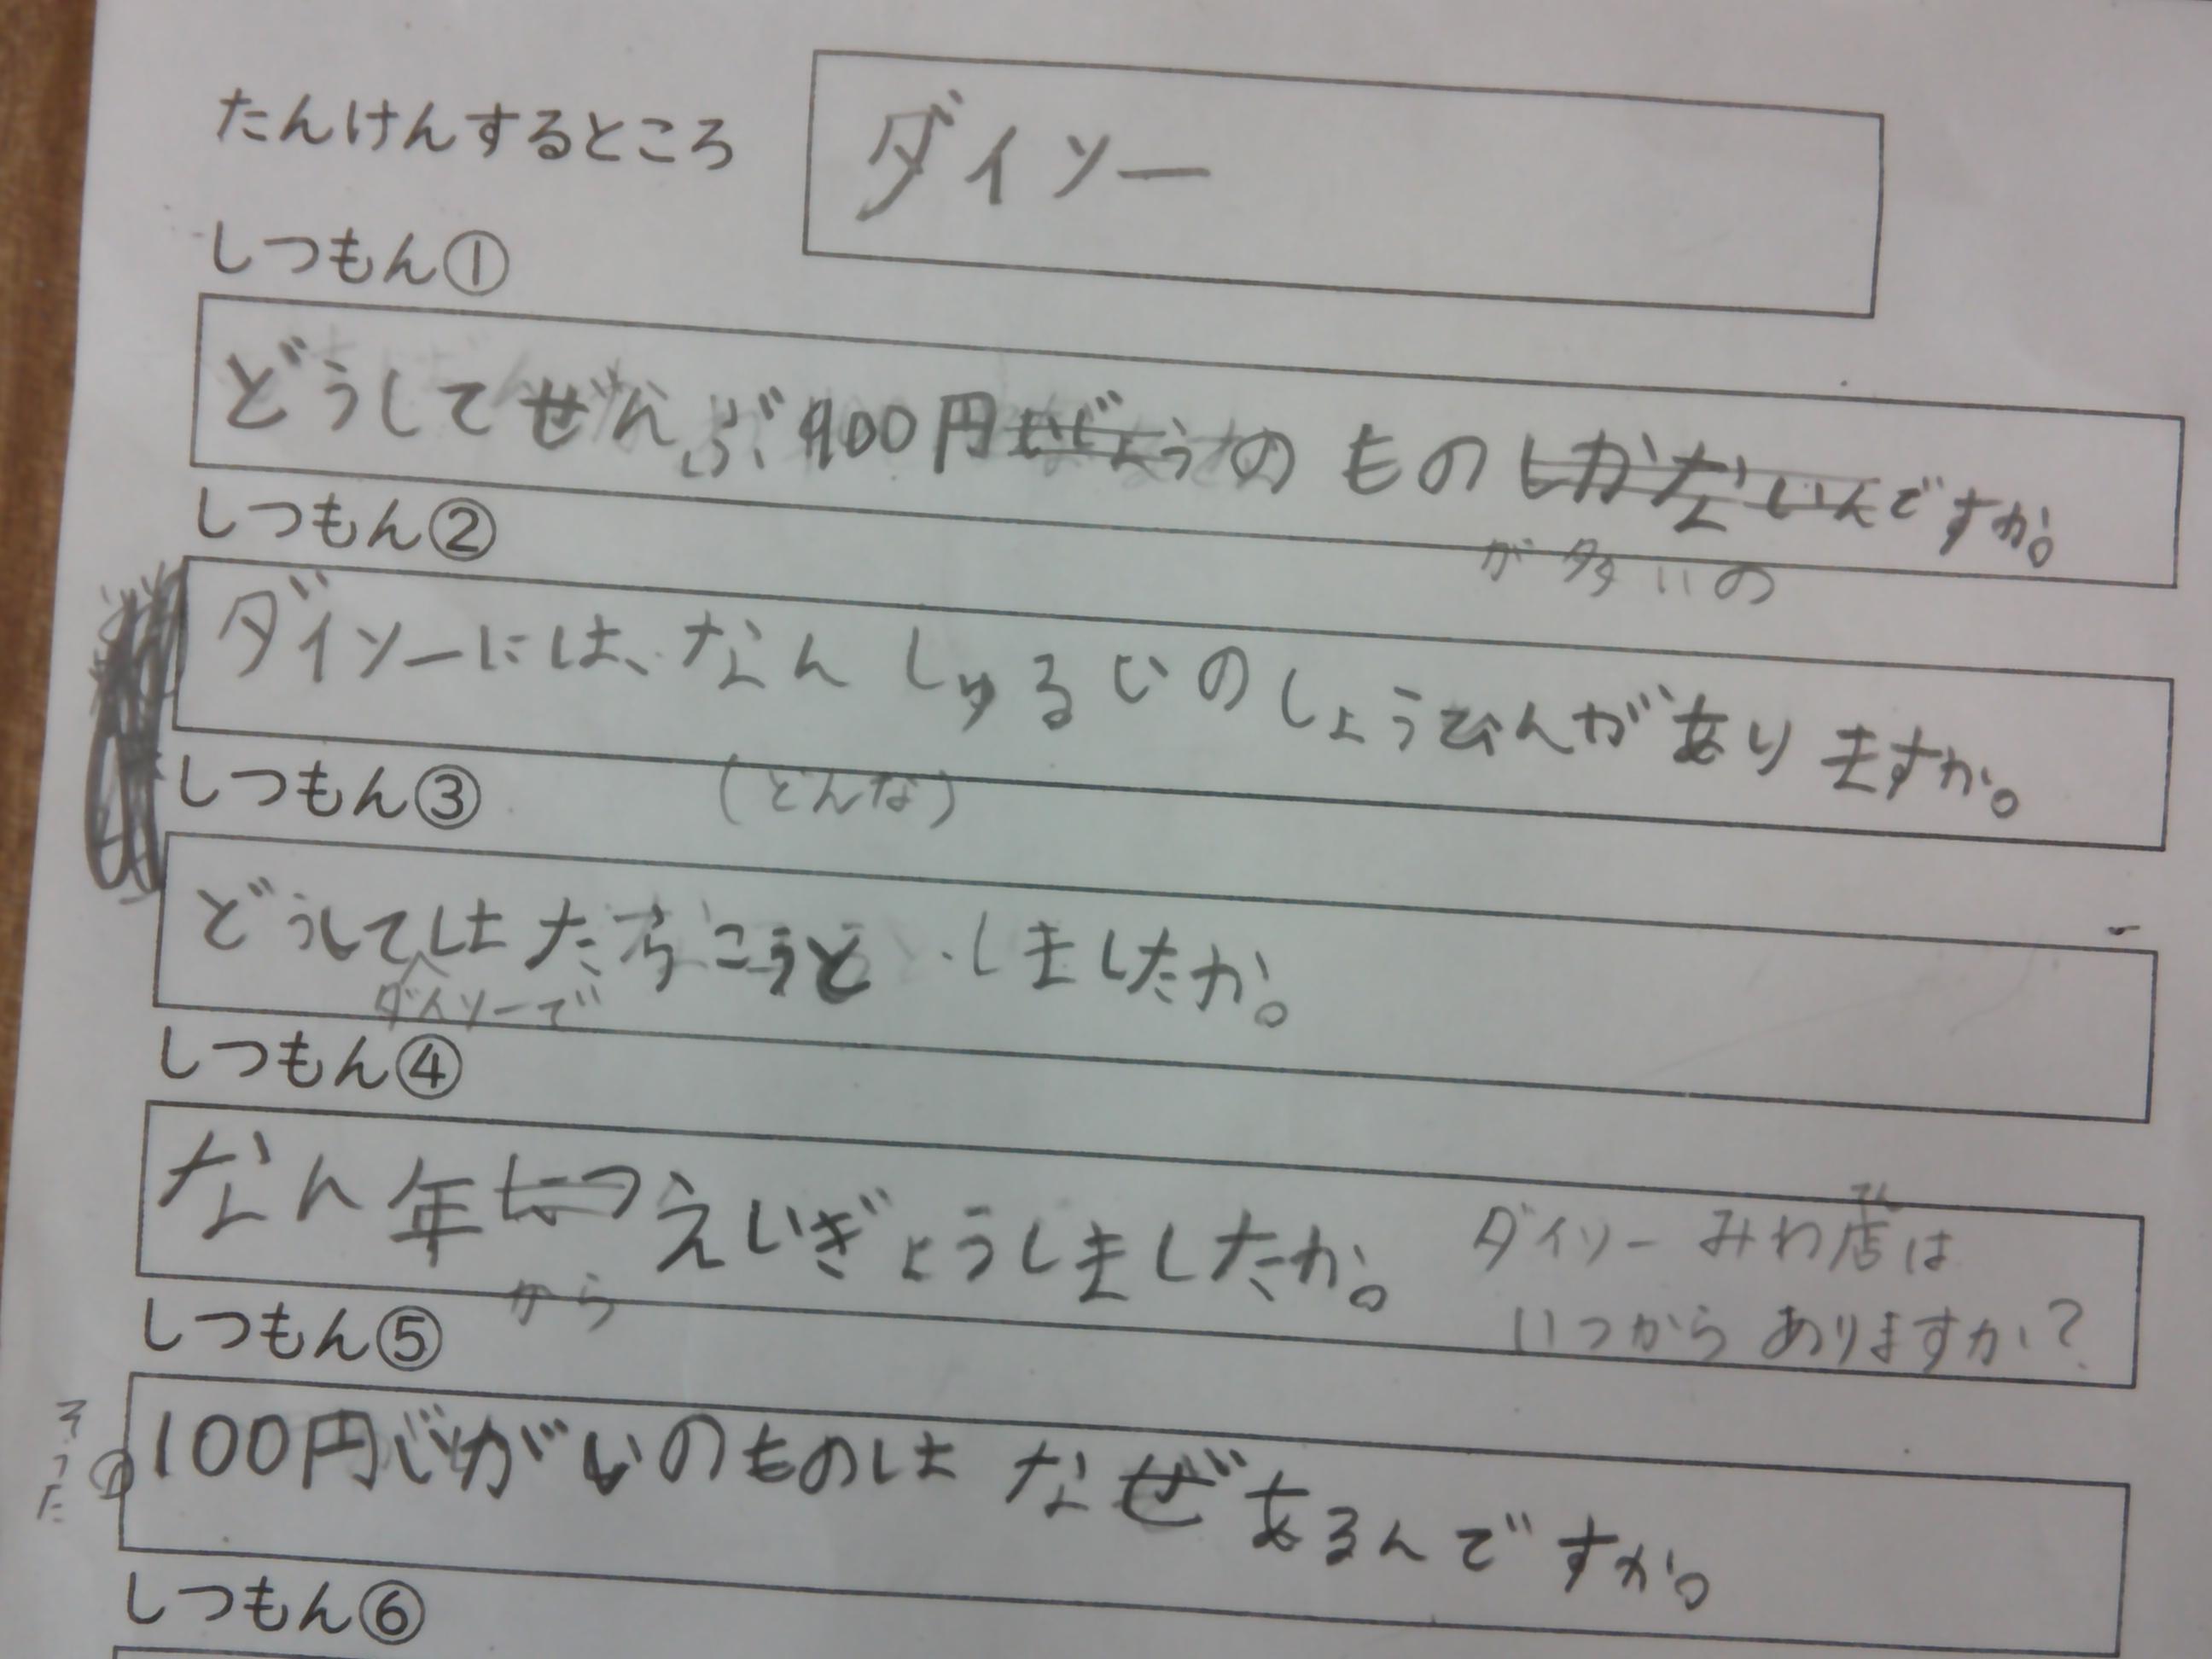 たんけんするところ
ダイソー
しつもん①
どうしてぜんぶ100円のものしかないんですか。
が多いの
しつもん②
ダイソーには、なんしゅるいのしょうひんがありますか。
(どんな)
しつもん③
どうしてはたらこうとしましたか。
ダイソーで
しつもん④
なん年につえいぎょうしましたか。
から
てん
ダイソーみわ店は
いつからありますか?
しつもん⑤
100円じがいのものはなぜあるんですか。
しつもん⑥